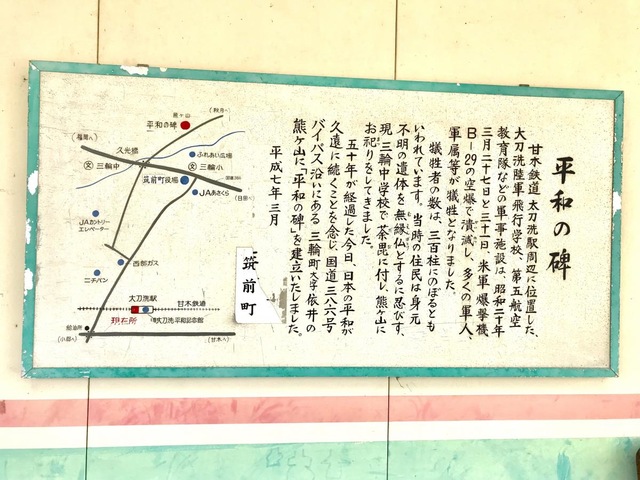 平和の碑
甘木鉄道、太刀洗駅周辺に位置した、
大刀洗陸軍飛行学校、第五航空
教育隊などの軍事施設は、昭和二十年
三月二十七日と三十一日、米軍爆撃機
B-29の空爆で潰滅し、多くの軍人、
軍属等が犠牲となりました。
犠牲者の数は、三百柱にのぼるとも
いわれています。当時の住民は身元
不明の遺体を無縁仏とするに忍びず、
現三輪中学校で荼毘に付し、熊ヶ山に
お祀りをしてきました。
五十年が経過した今日、日本の平和が
久遠に続くことを念じ、国道三八六号
バイパス沿いにある三輪町大字依井の
熊ヶ山に「平和の碑」を建立いたしました。
平成七年三月
筑前町
(秋月へ)
熊ヶ山
平和の碑
(福岡へ)
久光橋
ふれあい広場
文 三輪中
文 三輪小
筑前町役場
国道386
(日田へ)
JAあさくら
JAカントリー
エレベーター
西部ガス
ニチバン
大刀洗駅
甘木鉄道
現在所
大刀洗平和記念館
給油所
(小郡へ)
(甘木へ)